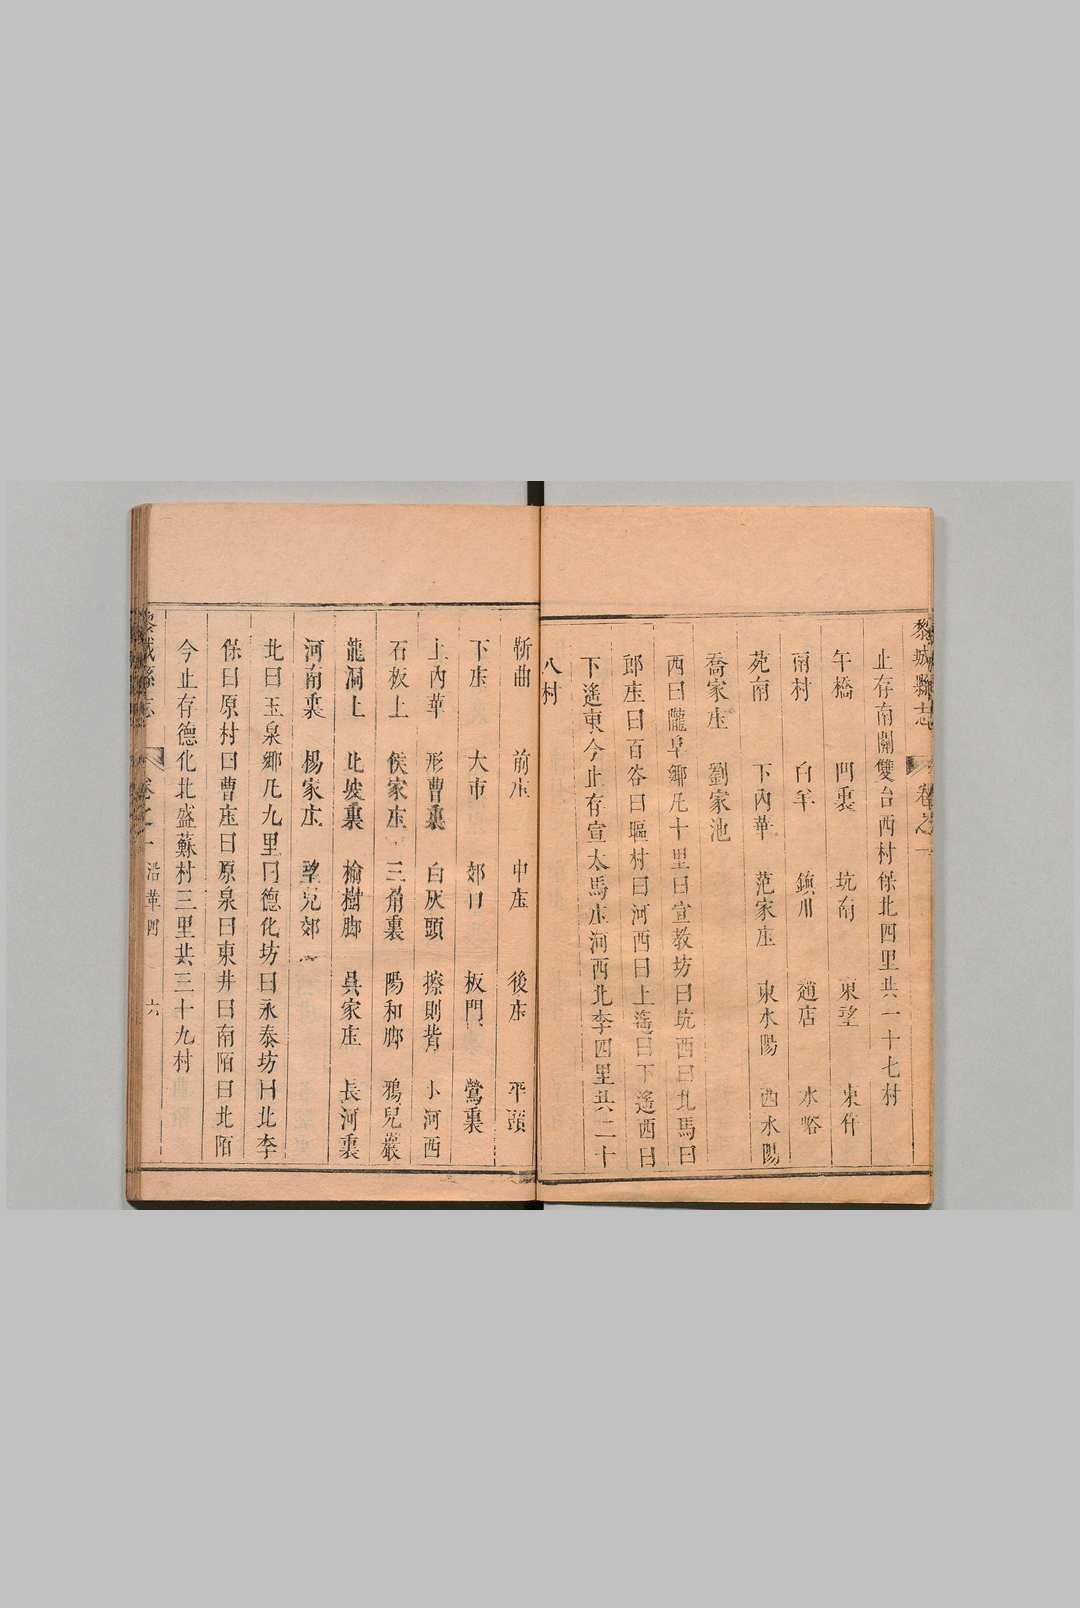 黎城縣志 卷之一
止存南關雙台西村保北四里共一十七村
午橋 門裏 坑南 東望 東仵
南村 白羊 鎮川 趙店 水峪
苑南 下內華 范家庄 東水陽 西水陽
喬家庄 劉家池
西曰隴阜鄉凡十里曰宣教坊曰坑西曰北馬曰
郎庄曰百谷曰堰村曰河西曰上遙曰下遙西曰
下遙東今止存宣太馬庄河西北李四里共二十
八村
靳曲 前庄 中庄 後庄 平頭
下庄 大市 郊口 板門 鶯裏
上內華 形曹裏 白灰頭 擦則背 小河西
石板上 侯家庄 三角裏 陽和腳 鴉兒巖
龍洞上 北坡裏 榆樹腳 吳家庄 長河裏
河南裏 楊家庄 望兒郊
北曰玉泉鄉凡九里曰德化坊曰永泰坊曰北李
保曰原村曰曹庄曰原泉曰東井曰南陌曰北陌
今止存德化北盛蘇村三里共三十九村
黎城縣志 卷之一 沿革四 六